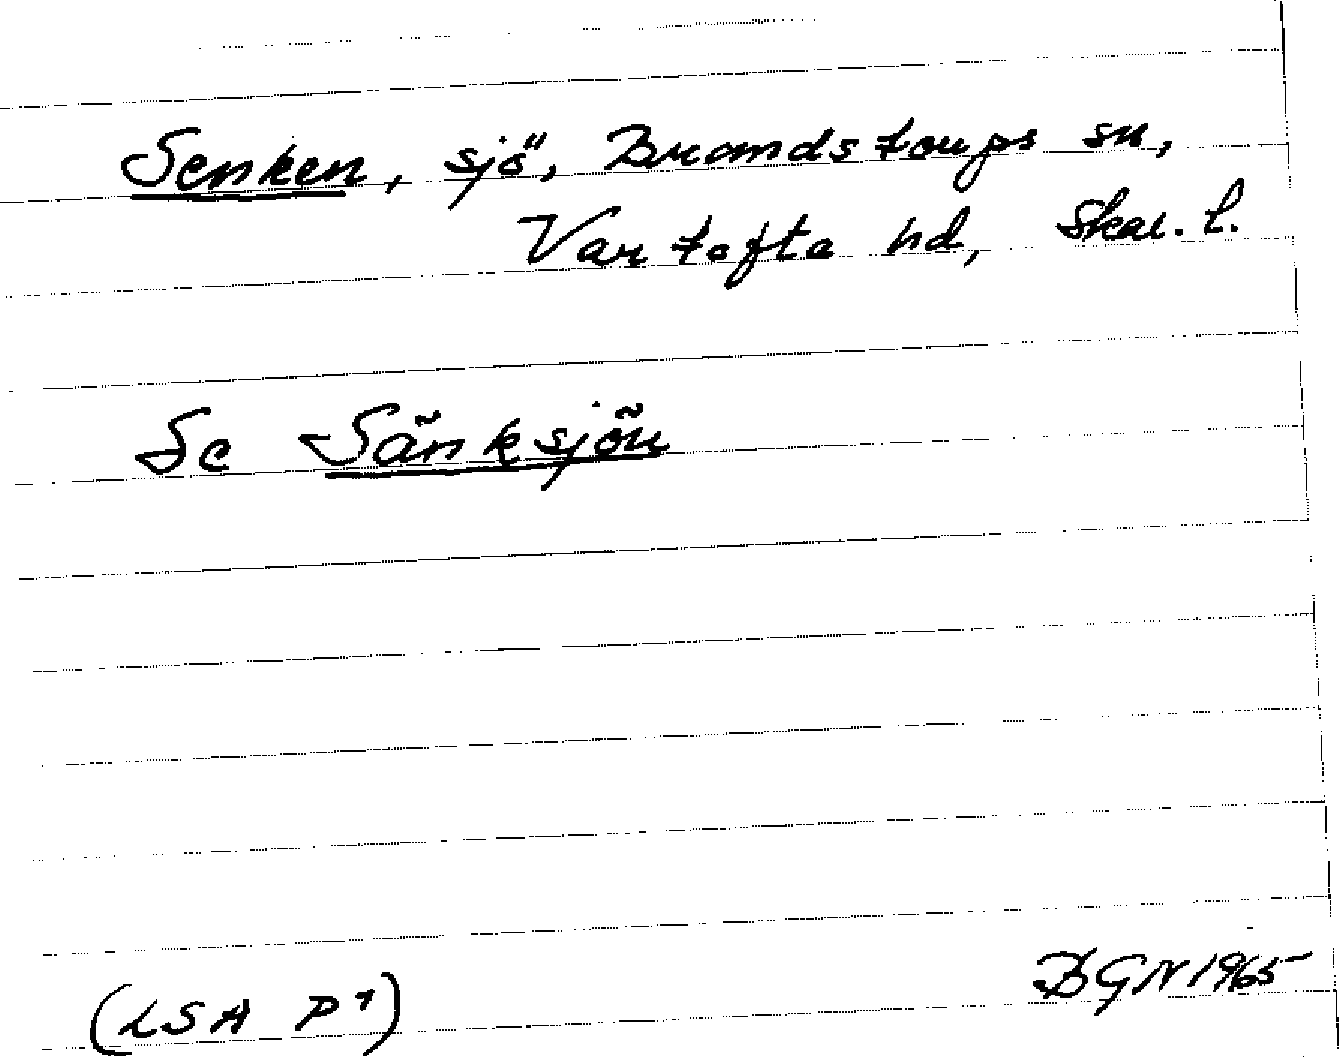 Senken, sjö, Brandstorps sn,
Vartofta hd, Skar. l.
Se Sänksjön
(LSA P1) BGN 1965